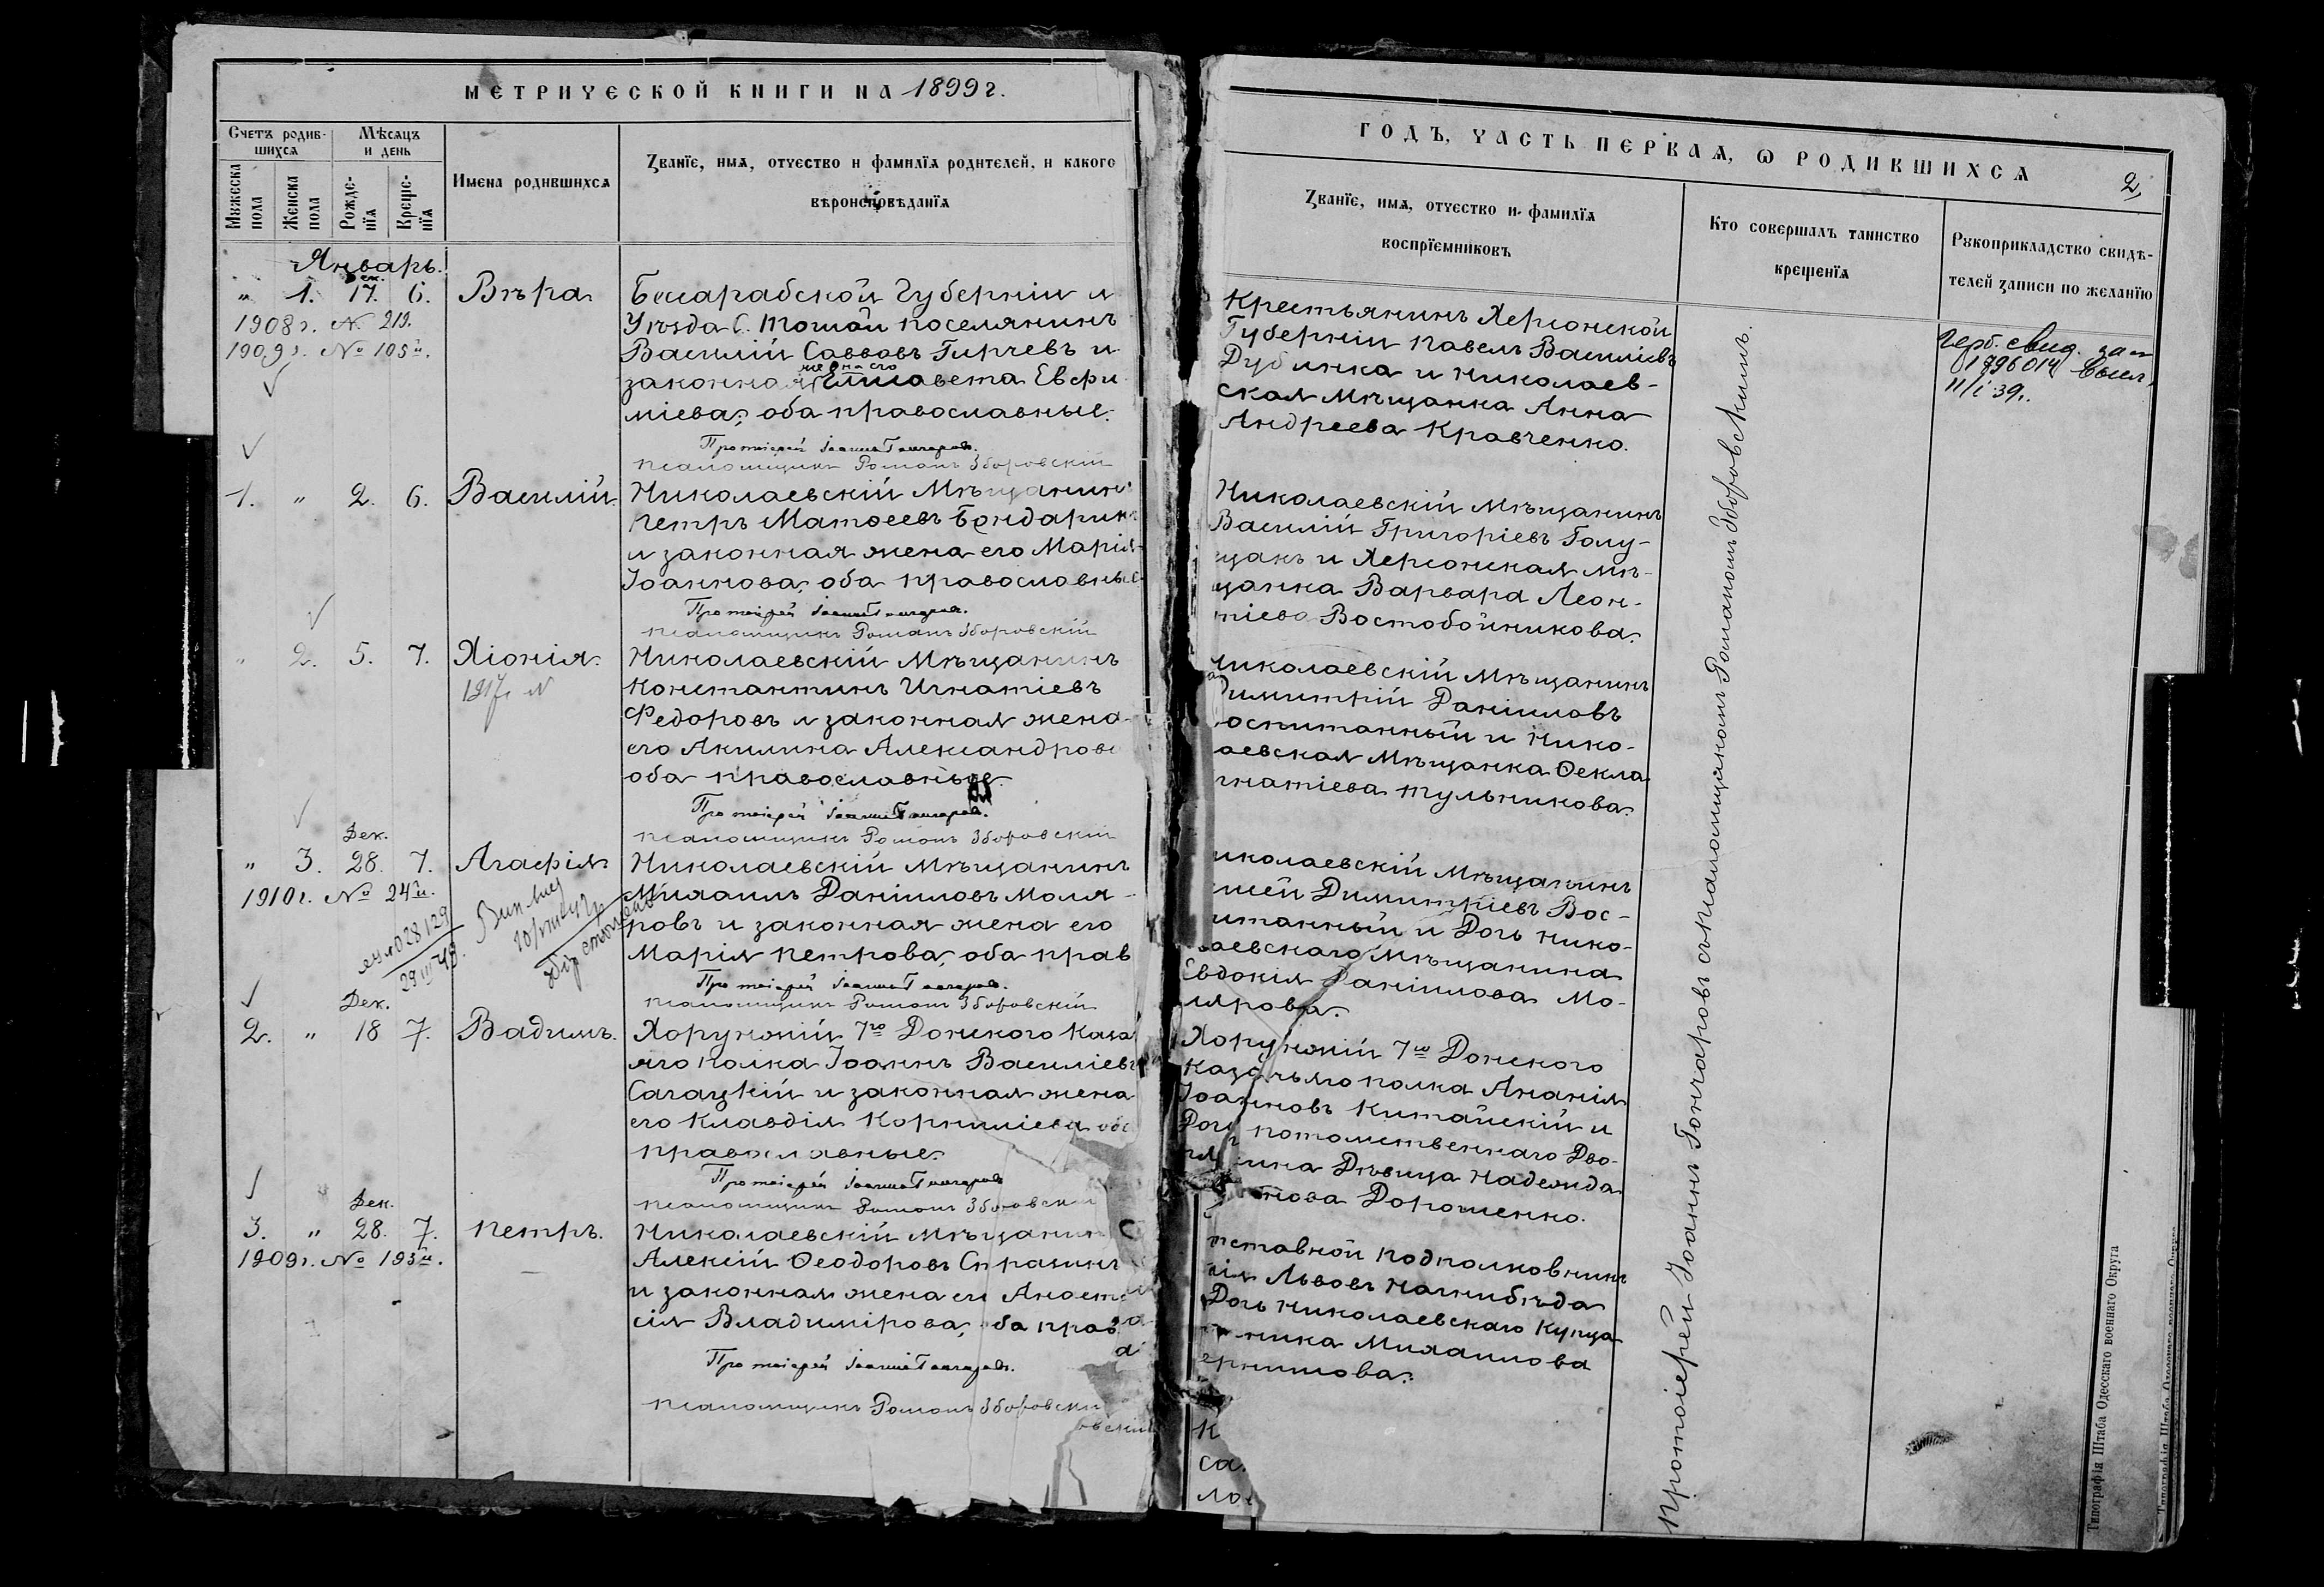 МЕТРИЧЕСКОЙ КНИГИ НА 1899 г.
Счетъ родившихся
Мѣсяцъ и день
Мужеска пола
Женска пола
Рожденїя
Крещенїя
Имена родившихся
Званїе, имя, отчество и фамилїя родителей, и какого
вѣроисповѣданїя
Январь.
" 1. 17. 6. Вѣра
1908 г. № 219.
1909 г. № 105
Бессарабской Губерніи и
Уѣзда С. поселянинъ
Василій Саввовъ Гирчевъ и
законная жена его Елисавета Евфи
міева, оба православные.
Протоіерей Іоаннъ Гончаровъ.
Псаломщикъ Романъ Зборовскій
1. " 2. 6. Василій.
Николаевскій Мѣщанинъ
Петръ Матѳеевъ Бондарин
и законная жена его Марія
Іоаннова, оба православные
Протоіерей Іоаннъ Гончаровъ.
Псаломщикъ Романъ Зборовскій
" 2. 5. 7. Хіонія.
Николаевскій Мѣщанинъ
Константинъ Игнатіевъ
Федоровъ и законная жена
его Акилина Александров
оба православные
Протоіерей Іоаннъ Гончаровъ.
Псаломщикъ Романъ Зборовскій
Дек.
" 3. 28. 7. Агафія.
1910 г. № 24
028129
Николаевскій Мѣщанинъ
Михаилъ Даніиловъ Моля-
ровъ и законная жена его
Марія Петрова, оба прав
Протоіерей Іоаннъ Гончаровъ.
Псаломщикъ Романъ Зборовскій
Дек.
2. " 18 7. Вадимъ.
Хорунжій 7го Донского Каза
яго полка Іоаннъ Василіевъ
Сагацкій и законная жена
его Клавдія Корниліева об
православные.
Протоіерей Іоаннъ Гончаровъ
Псаломщикъ Романъ Зборовскі
Дек.
3. " 28. 7. Петръ.
1909 г. № 193
Николаевскій Мѣщанин
Алексій Ѳеодоровъ
и законная жена его Анаста
сія Владимірова, оба прав
Протоіерей Іоаннъ Гончаровъ.
Псаломщикъ Романъ Зборовски
ГОДЪ, ЧАСТЬ ПЕРВАЯ, Ѡ РОДИВШИХСЯ
2
Званїе, имя, отчество и фамилїя
воспрїемниковъ
Кто совершалъ таинство
крещенїя
Рукоприкладство свидѣ-
телей записи по желанїю
Крестьянинъ Херсонской
Губерніи Павелъ Василіевъ
Дубинка и Николаев-
ская Мѣщанка Анна
Андреева Кравченко.
Николаевскій Мѣщанинъ
Василій Григоріевъ Голу-
щакъ и Херсонская мѣ-
щанка Варвара Леон-
тіева Востобойникова.
иколаевскій Мѣщанинъ
Димитрій Даніиловъ
оспитанный и Нико-
лаевская Мѣщанка Ѳекла
гнатіева Тульникова.
иколаевскій Мѣщанинъ
Димитріевъ Вос-
итанный и Дочь Нико-
лаевскаго Мѣщанина
Евдокія Даніилова Мо-
лярова.
Хорунжій 7го Донского
Казачьяго полка Ананія
Іоанновъ Китайскій и
Дочь потомственнаго Дво-
нина Дѣвица Надежда
нова Дорошенко.
тставной Подполковникъ
Львовъ Нагнибѣда
Дочь Николаевскаго Купца
Михаилова
ернилова.
К
са.
ло
Протоіерей Іоаннъ Гончаровъ съ псаломщикомъ Романомъ Зборовскимъ.
Герб. свид.
11/I 39 г.
Типографія Штаба Одесскаго военнаго Округа